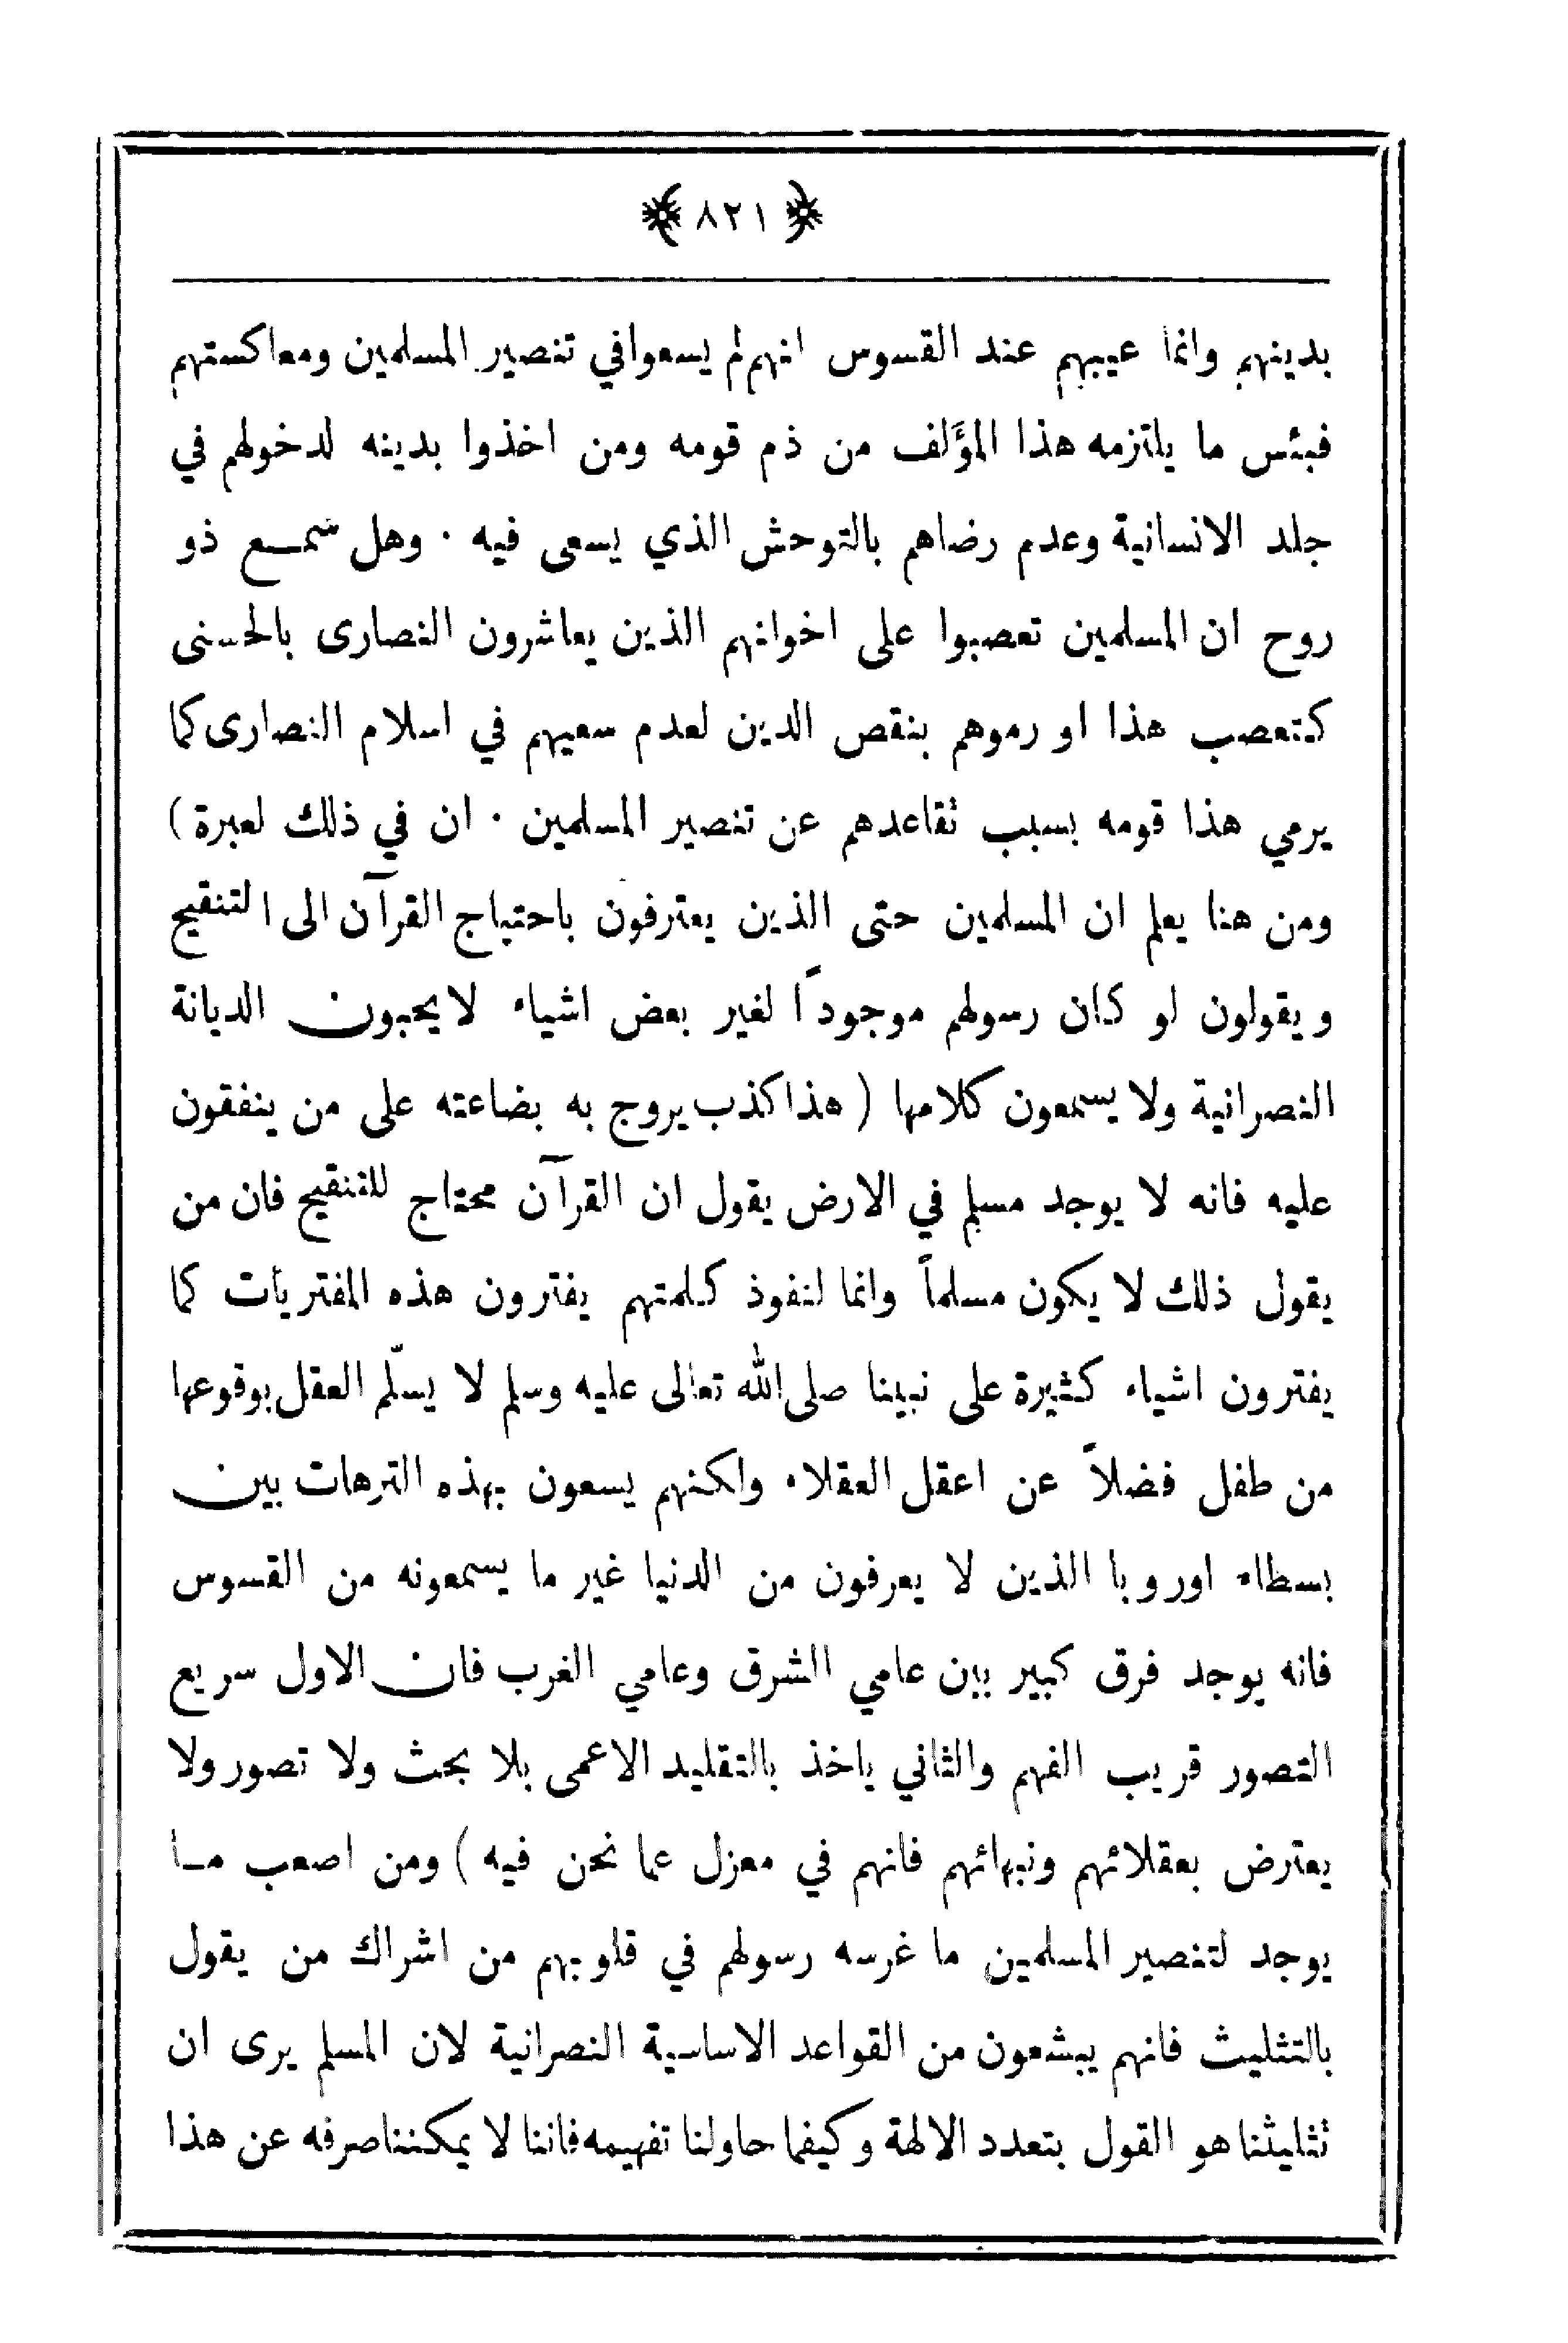 ﴿ ٨٢١ ﴾
بدينهم وانما عيبهم عند القسوس انهم لم يسعوا في تنصير المسلمين ومعاكستهم
فبئس ما يلتزمه هذا المؤَلف من ذم قومه ومن اخذوا بدينه لدخولهم في
جلد الانسانية وعدم رضاهم بالتوحش الذي يسعى فيه ٠ وهل سمع ذو
روح ان المسلمين تعصبوا على اخوانهم الذين يعاشرون النصارى بالحسنى
كتعصب هذا او رموهم بنقص الدين لعدم سعيهم في اسلام النصارى كما
يرمي هذا قومه بسبب تقاعدهم عن تنصير المسلمين ٠ ان في ذلك لعبرة )
ومن هنا يعلم ان المسلمين حتى الذين يعترفون باحتياج القرآن الى التنقيح
ويقولون لو كان رسولهم موجوداً لغير بعض اشياء لا يحبون الديانة
النصرانية ولا يسمعون كلامها ( هذا كذب يروج به بضاعته على من ينفقون
عليه فانه لا يوجد مسلم في الارض يقول ان القرآن محتاج للتنقيح فان من
يقول ذلك لا يكون مسلماً وانما لنفوذ كلمتهم يفترون هذه المفتريات كما
يفترون اشياء كثيرة على نبينا صلى الله تعالى عليه وسلم لا يسلّم العقل بوقوعها
من طفل فضلاً عن اعقل العقلاء ولكنهم يسعون بهذه الترهات بين
بسطاء اوروبا الذين لا يعرفون من الدنيا غير ما يسمعونه من القسوس
فانه يوجد فرق كبير بين عامي الشرق وعامي الغرب فان الاول سريع
التصور قريب الفهم والثاني ياخذ بالتقليد الاعمى بلا بحث ولا تصور ولا
يعترض بعقلائهم ونبهائهم فانهم في معزل عما نحن فيه ) ومن اصعب ما
يوجد لتنصير المسلمين ما غرسه رسولهم في قلوبهم من اشراك من يقول
بالتثليث فانهم يبشعون من القواعد الاساسية النصرانية لان المسلم يرى ان
تثليثنا هو القول بتعدد الالهة وكيفما حاولنا تفهيمه فاننا لا يمكننا صرفه عن هذا